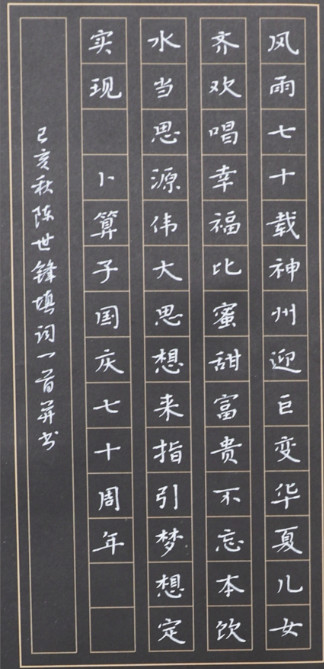 风雨七十载神州迎巨变华夏儿女
齐欢唱幸福比蜜甜富贵不忘本饮
水当思源伟大思想来指引梦想定
实现 卜算子国庆七十周年
己亥秋陈世锋填词一首并书